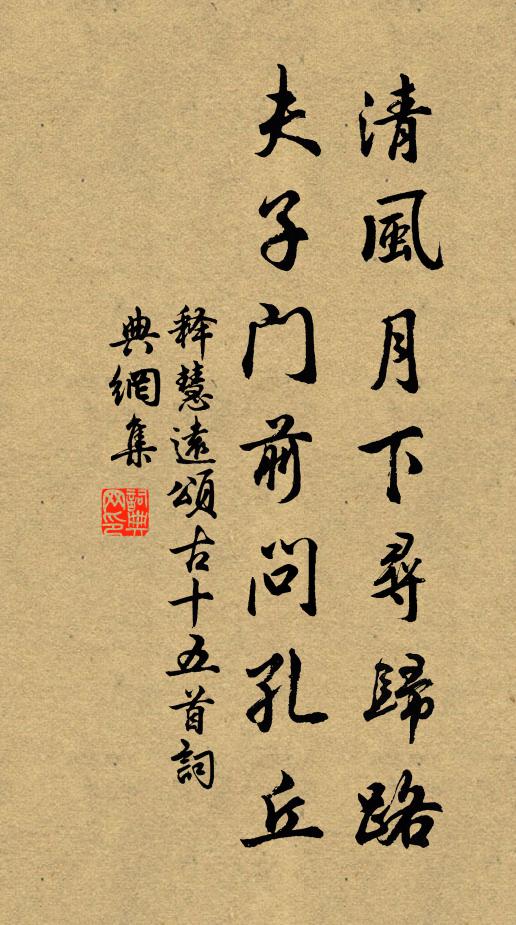 清風月下尋歸路
夫子门前问孔丘
释慧遠頌古十五首詞
典網集
詞典網印